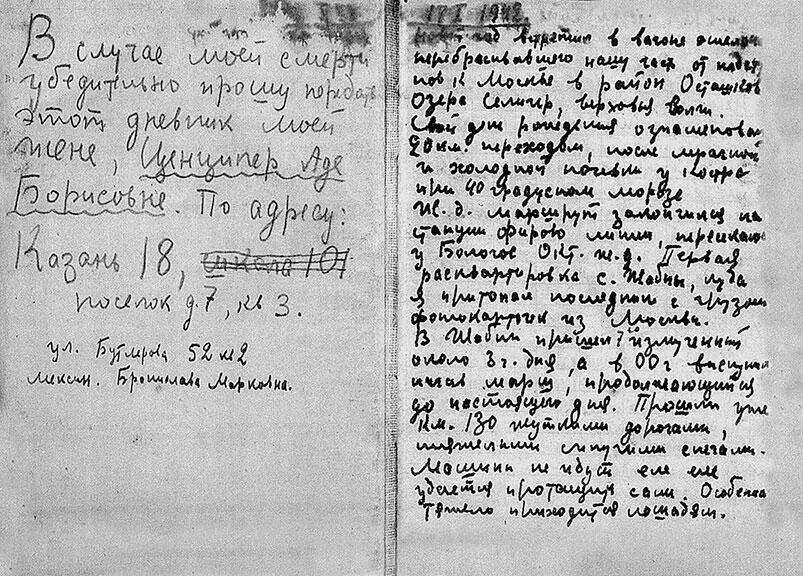 В случае моей смерти
убедительно прошу передать
этот дневник моей
жене, Ценципер Аде
Борисовне. По адресу:
Казань 18, школа 101
поселок д. 7, кв 3.
ул. Бутлерова 52 кв 2
Бронислава Марковна.
17 I 1942.
Новый год встретил в вагоне эшелона
перебрасывавшего нашу часть от
к Москве в район Осташков
Озера Селигер, верховья Волги.
Свой день рождения ознаменовал
20 км. переходом, после мрачной
и холодной ночевки у костра
при 40 градусном морозе
Ж. д. маршрут закончился на
станции Фирово линии, пересекающ
у Бологое Окт. ж.д. Первая
расквартировка с. Жабны, куда
я притопал последним с грузом
фотокарточек из Москвы.
В Жабны пришел измученный
около 3 г. дня, а в 00 г выступил
начав марш, продолжающийся
до настоящего дня. Прошли уже
км. 130 жуткими дорогами,
сыпучими снегами.
Машины не идут еле еле
удается протащить сани. Особенно
тяжело приходится лошадям.